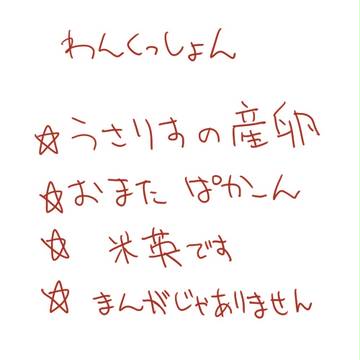 わんくっしょん
☆うさりすの産卵
☆おまた ぱかーん
☆ 米英です
☆ まんがじゃありません